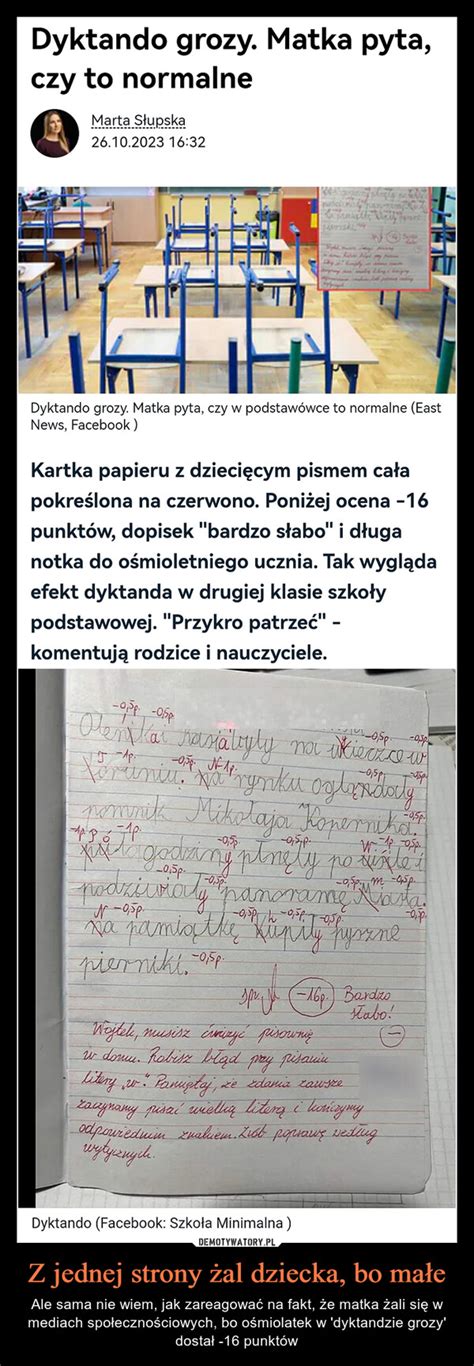 Dyktando grozy. Matka pyta,
czy to normalne
Marta Słupska
26.10.2023 16:32
Dyktando grozy. Matka pyta, czy w podstawówce to normalne (East
News, Facebook )
Kartka papieru z dziecięcym pismem cała
pokreślona na czerwono. Poniżej ocena -16
punktów, dopisek "bardzo słabo" i długa
notka do ośmioletniego ucznia. Tak wygląda
efekt dyktanda w drugiej klasie szkoły
podstawowej. "Przykro patrzeć" -
komentują rodzice i nauczyciele.
-0,5p. -0,5p.
na -0,5p
-1p. -0,5p. N 1p. -0,5p
rynku oglądały
pomnik Mikołaja Kopernika.
-1p. -0,5p. -0,5p. W -1p. -0,5p.
godziny płnęły po
-0,5p. -0,5p. -0,5p. m -0,5p.
podziwiały panoramę
N -0,5p. -0,5p. -0,5p. -0,5p.
pamiątkę kupiły pyszne
pierniki. -0,5p.
-16p. Bardzo
słabo!
Wojtek, musisz ćwiczyć pisownię
w domu. Robisz błąd przy pisaniu
litery „w". Pamiętaj, że zdania zawsze
zaczynamy pisać wielką literą i kończymy
odpowiednim znakiem. Zrób poprawę według
wytycznych.
Dyktando (Facebook: Szkoła Minimalna )
DEMOTYWATORY.PL
Z jednej strony żal dziecka, bo małe
Ale sama nie wiem, jak zareagować na fakt, że matka żali się w
mediach społecznościowych, bo ośmiolatek w 'dyktandzie grozy'
dostał -16 punktów